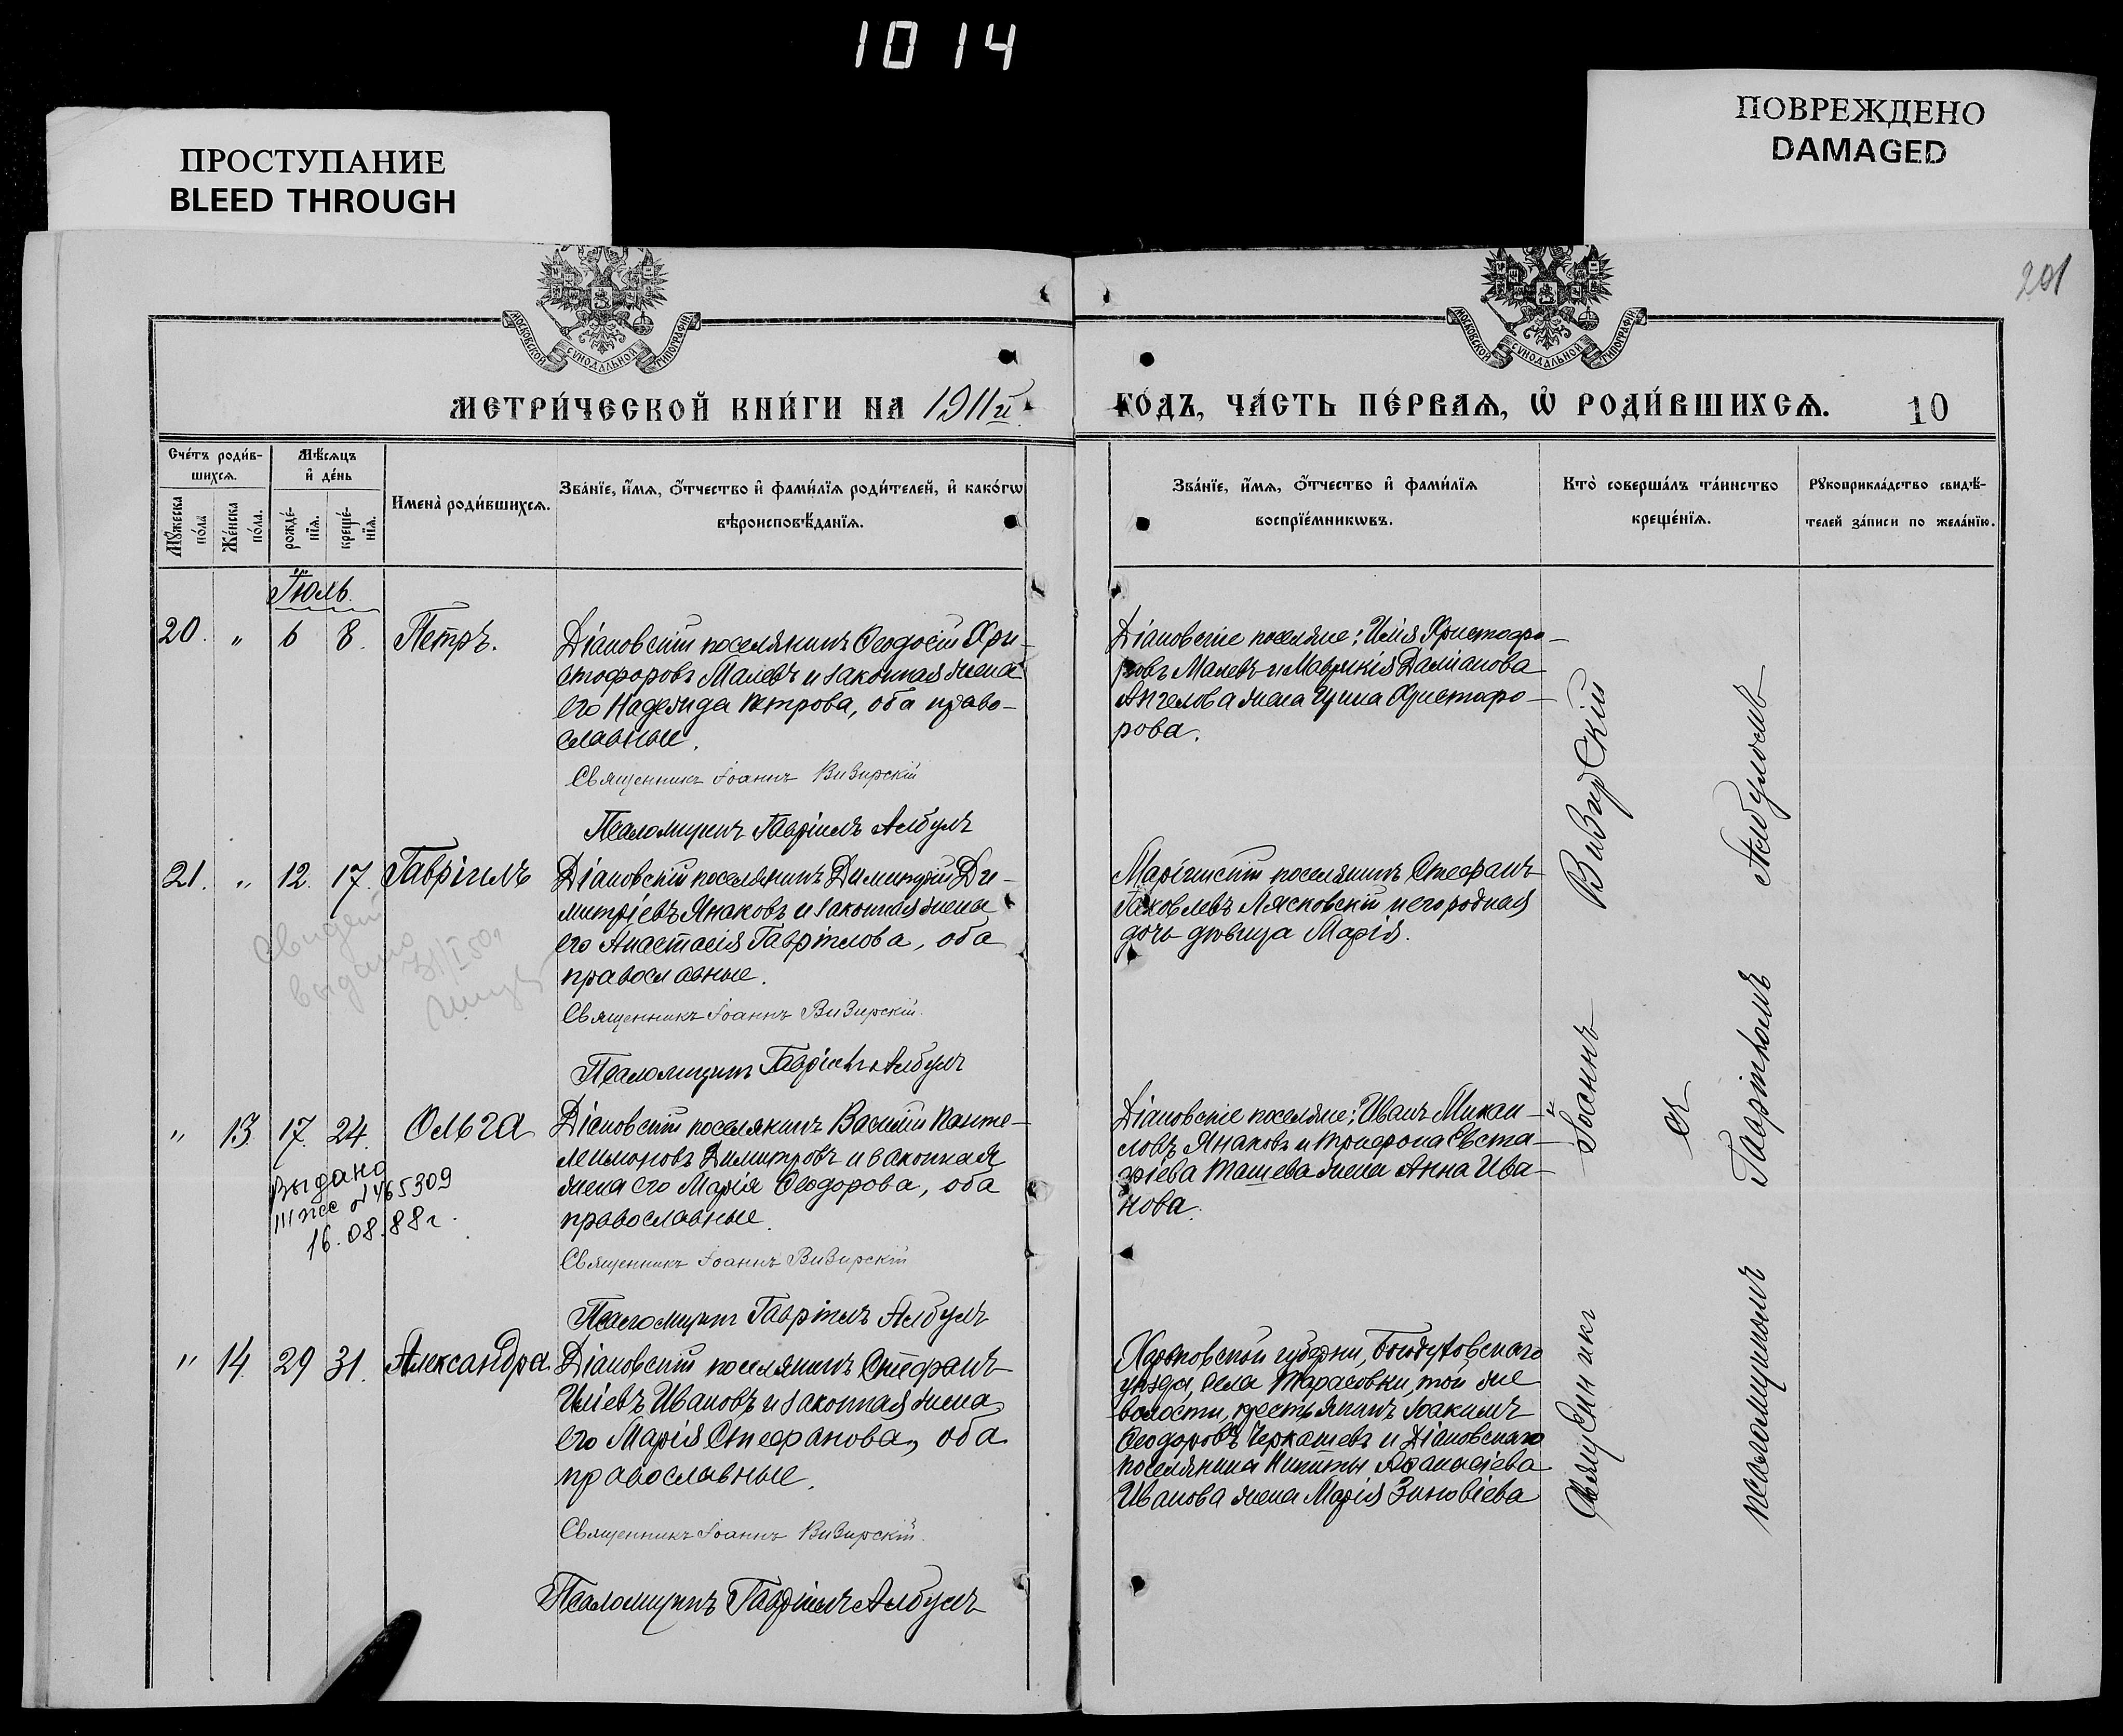 1014
ПРОСТУПАНИЕ
BLEED THROUGH
ПОВРЕЖДЕНО
DAMAGED
201
МОСКОВСКОЙ СѴНОДАЛЬНОЙ ТИПОГРАФІИ
МОСКОВСКОЙ СѴНОДАЛЬНОЙ ТИПОГРАФІИ
МЕТРИ́ЧЕСКОЙ КНИ́ГИ НА 1911й
ГО́ДЪ, ЧА́СТЬ ПЕ́РВАѦ, Ѡ҆ РОДИ́ВШИХСѦ. 10
Сче́тъ роди́в-
шихсѧ.
Мꙋ́жеска по́ла
Же́нска по́ла.
Мѣ́сѧцъ
и҆ де́нь
рожде́-
нїѧ.
креще́-
нїѧ.
Имена̀ роди́вшихсѧ.
Зва́нїе, и҆́мѧ, ѻ҆́тчество и҆ фами́лїѧ роди́телей, и҆ како́гѡ
вѣроисповѣ́данїѧ.
Зва́нїе, и҆́мѧ, ѻ҆́тчество и҆ фами́лїѧ
воспрїе́мникѡвъ.
Кто̀ соверша́лъ та́инство
креще́нїѧ.
Рꙋкоприкла́дство свидѣ́-
телей за́писи по жела́нїю.
Іюль.
20. „ 6 8. Петръ.
Діановскій поселянинъ Ѳеодосій Хри-
стофоровъ Малевъ и законная жена
его Надежда Петрова, оба право-
славные.
Священникъ Іоаннъ Визирскій
Псаломщикъ Гавріилъ Албулъ
Діановскіе поселяне: Илія Христофо-
ровъ Малевъ и Маврикія Даміанова
Ангелова жена Ирина Христофо-
рова.
21. „ 12. 17. Гавріилъ
Діановскій поселянинъ Димитрій Ди-
митріевъ Янаковъ и законная жена
его Анастасія Гавріилова, оба
православные.
Священникъ Іоаннъ Визирскій.
Псаломщикъ Гавріилъ Албулъ
выдано
Маріинскій поселянинъ Стефанъ
Яковлевъ Лясковскій и его родная
дочь дѣвица Марія.
„ 13. 17. 24. Ольга
Діановскій поселянинъ Василій Панте-
леимоновъ Димитровъ и законная
жена его Марія Ѳеодорова, оба
православные.
Священникъ Іоаннъ Визирскій
Псаломщикъ Гавріилъ Албулъ
выдано
III пес № 465309
16.08.88г.
Діановскіе поселяне: Иванъ Михаи-
ловъ Янаковъ и Трифона Евста-
фіева Ташева жена Анна Ива-
нова.
„ 14. 29 31. Александра
Діановскій поселянинъ Стефанъ
Иліевъ Ивановъ и законная жена
его Марія Стефанова, оба
православные.
Священникъ Іоаннъ Визирскій.
Псаломщикъ Гавріилъ Албулъ
Харьковской губерніи,
уѣзда, села Тарасовки, той же
волости, крестьянинъ Іоакимъ
Ѳеодоровъ Черкашевъ и Діановскаго
поселянина Никиты Аѳанасіева
Иванова жена Марія Зиновіева
Священникъ Іоаннъ Визирскій
съ
псаломщикомъ Гавріиломъ Албуломъ